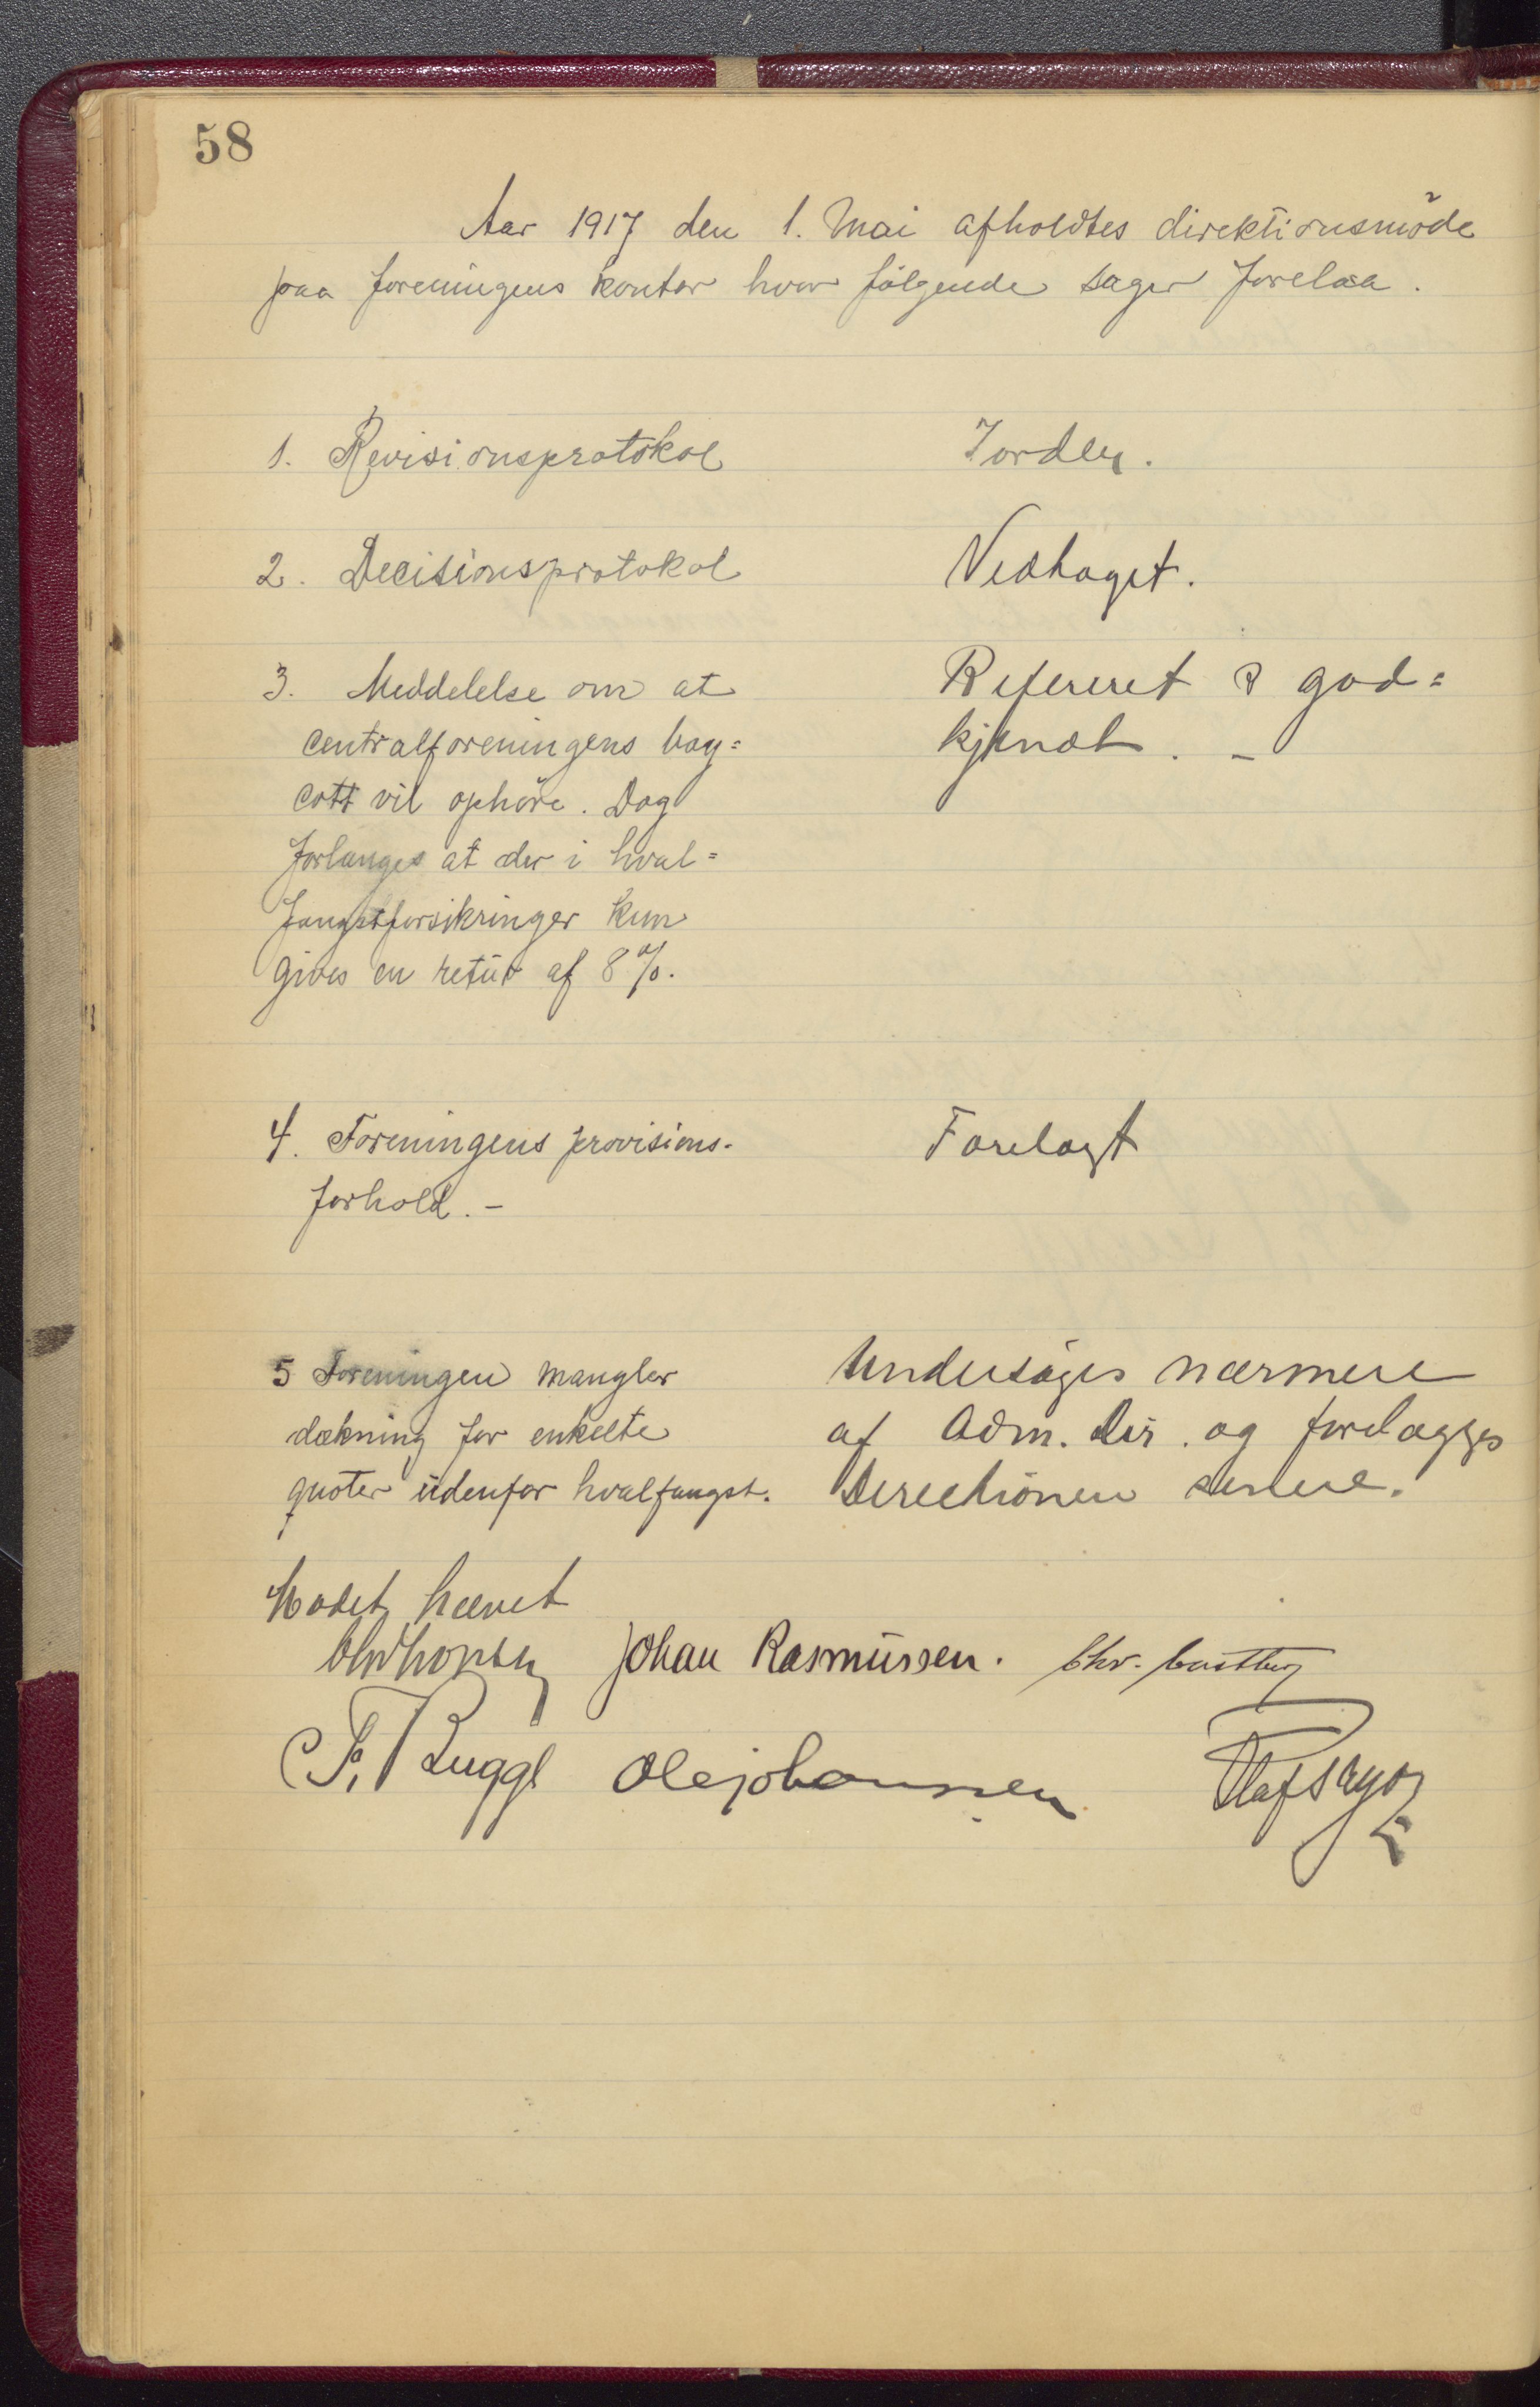 58
Aar 1917 den 1. Mai afholdtes direktionsmöde
paa foreningens kontor hvor følgende sager forelaa.
1. Revisionsprotokol
I orden.
2. Decisionsprotokol
Vedtaget.
3. Meddelelse om at
centralforeningens boy=
cott vil ophöre. Dog
forlanges at der i hval=
fangstforsikringer kun
gives en retür af 8%.
Refereret & god=
kjendt. -
4. Foreningens provisions-
forhold. -
Forelagt
5 Foreningen mangler
dækning for enkelte
quoter üdenfor hvalfangst.
Undersöges nærmere
af Adm. Dir. og forelægges
Directionen senere.
Mødet hævet
Johan Rasmüssen. Chr. Castberg
F. Bugge Ole Johannssen